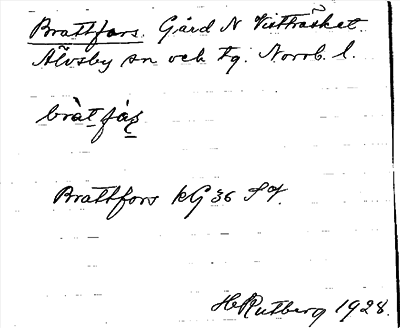 Brattfors. Gård N Vistträsket.
Älvsby sn och tg. Norrb. l.
bràt fàş
Brattfors kG 36
H Rutberg 1928.